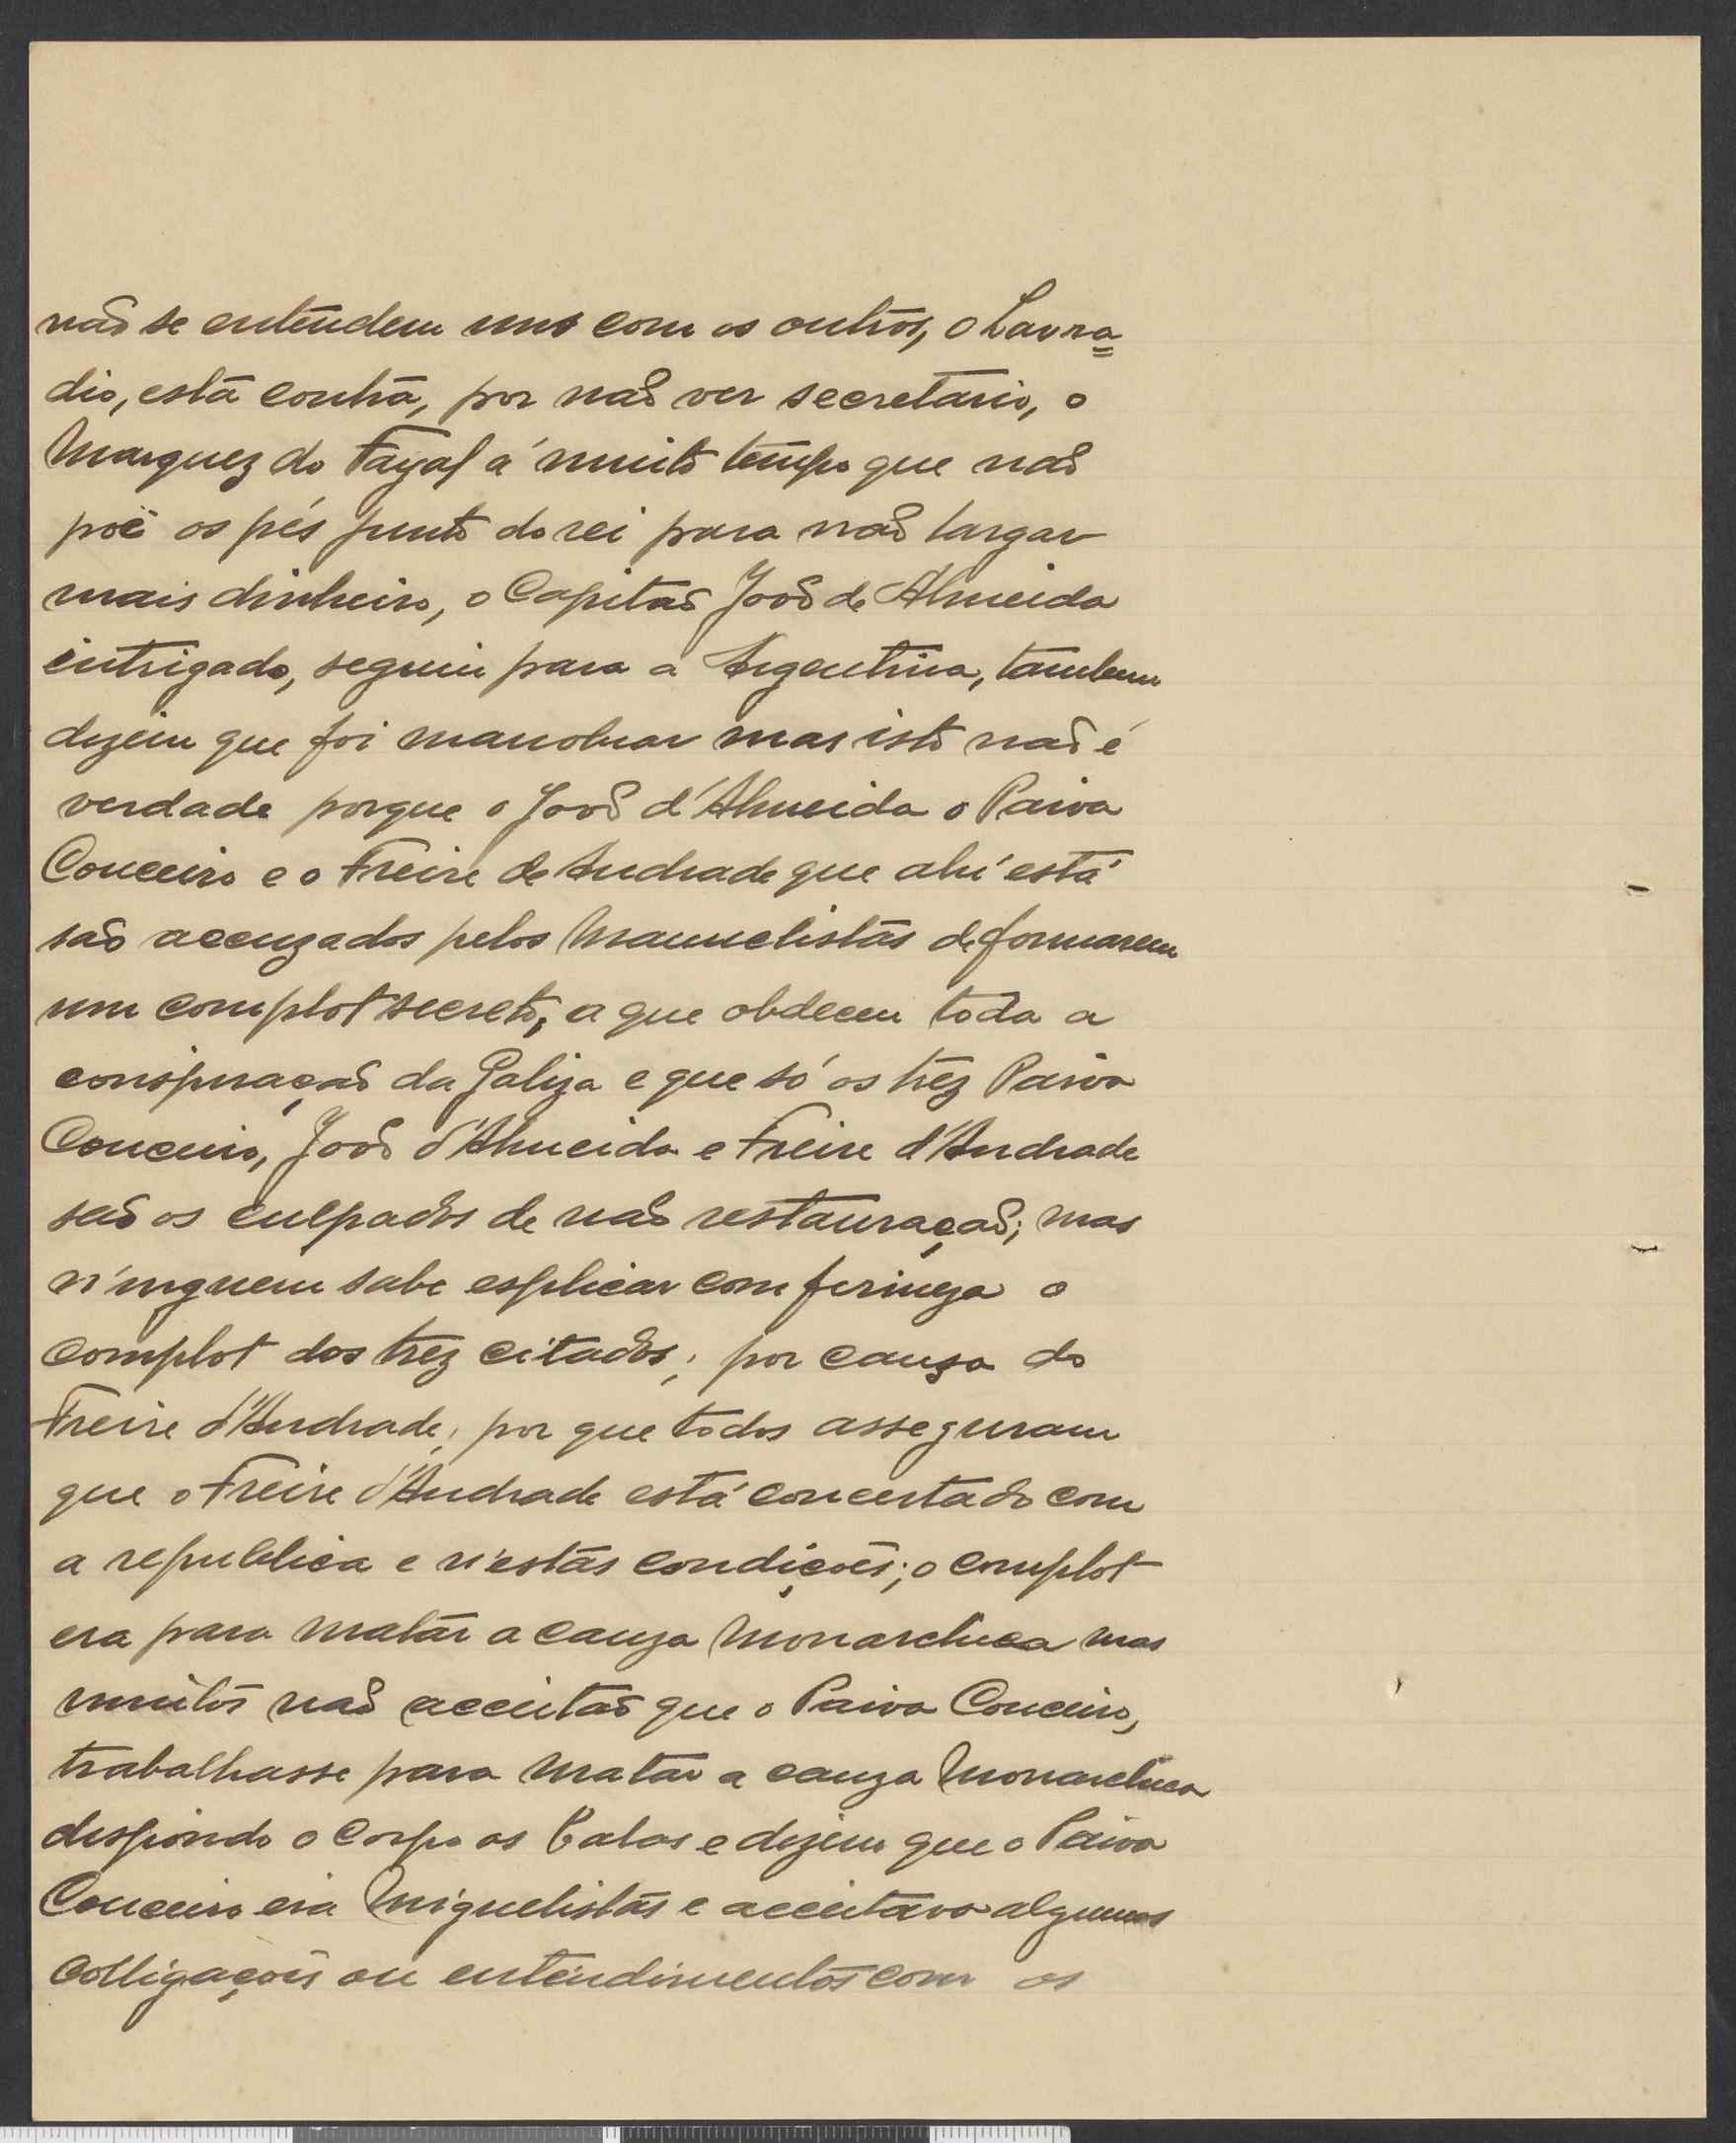 não se entendem uns com os outros, o Lavra=
dio, está contra, por não ver secretario, o
Marquez do Fayal á muito tempo que não
poê os pés junto do rei para não largar
mais dinheiro, o Capitão João de Almeida
intrigado, seguiu para a Argentina, tambem
dizem que foi manobrar mas isto não é
verdade porque o João d'Almeida o Paiva
Couceiro e o Freire de Andrade que ahi está
são accuzados pelos Manuelistas de formarem
um complot secreto, a que obdecem toda a
conspiração da Galiza e que só os trez Paiva
Couceiro, João d'Almeida e Freire d'Andrade
são os culpados de não restauração; mas
n'inguem sabe esplicar com firmeza o
complot dos trez citados; por causa do
Freire d'Andrade; por que todos asseguram
que o Freire d'Andrade está concertado com
a republica e n'estas condições; o complot
era para matar a cauza Monarchica mas
muitos não acceitão que o Paiva Couceiro,
trabalhasse para matar a cauza Monarchica
dispondo o corpo as balas e dizem que o Paiva
Couceiro era Miguelistas e acceitava algumas
colligações ou entendimentos com os